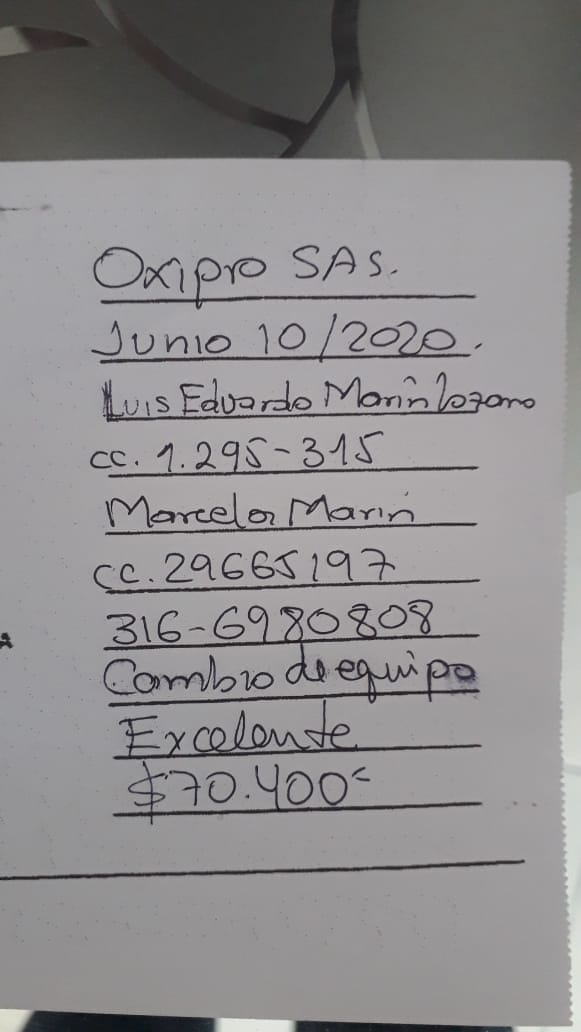 Oxipro SAS.
Junio 10/2020.
Luis Eduardo Marin Lozano
cc. 1.295-315
Marcela Marin
cc. 29665197
316-6980808
Cambio de equipo
Excelente
$70.400=